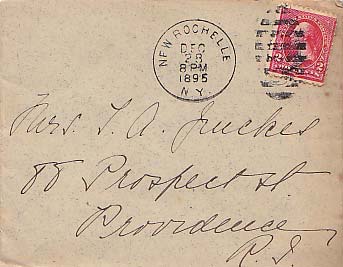 NEW ROCHELLE
DEC
28
8 PM
1895
N.Y.
Mrs. T. A. Juckes
88 Prospect st
Providence
R.I